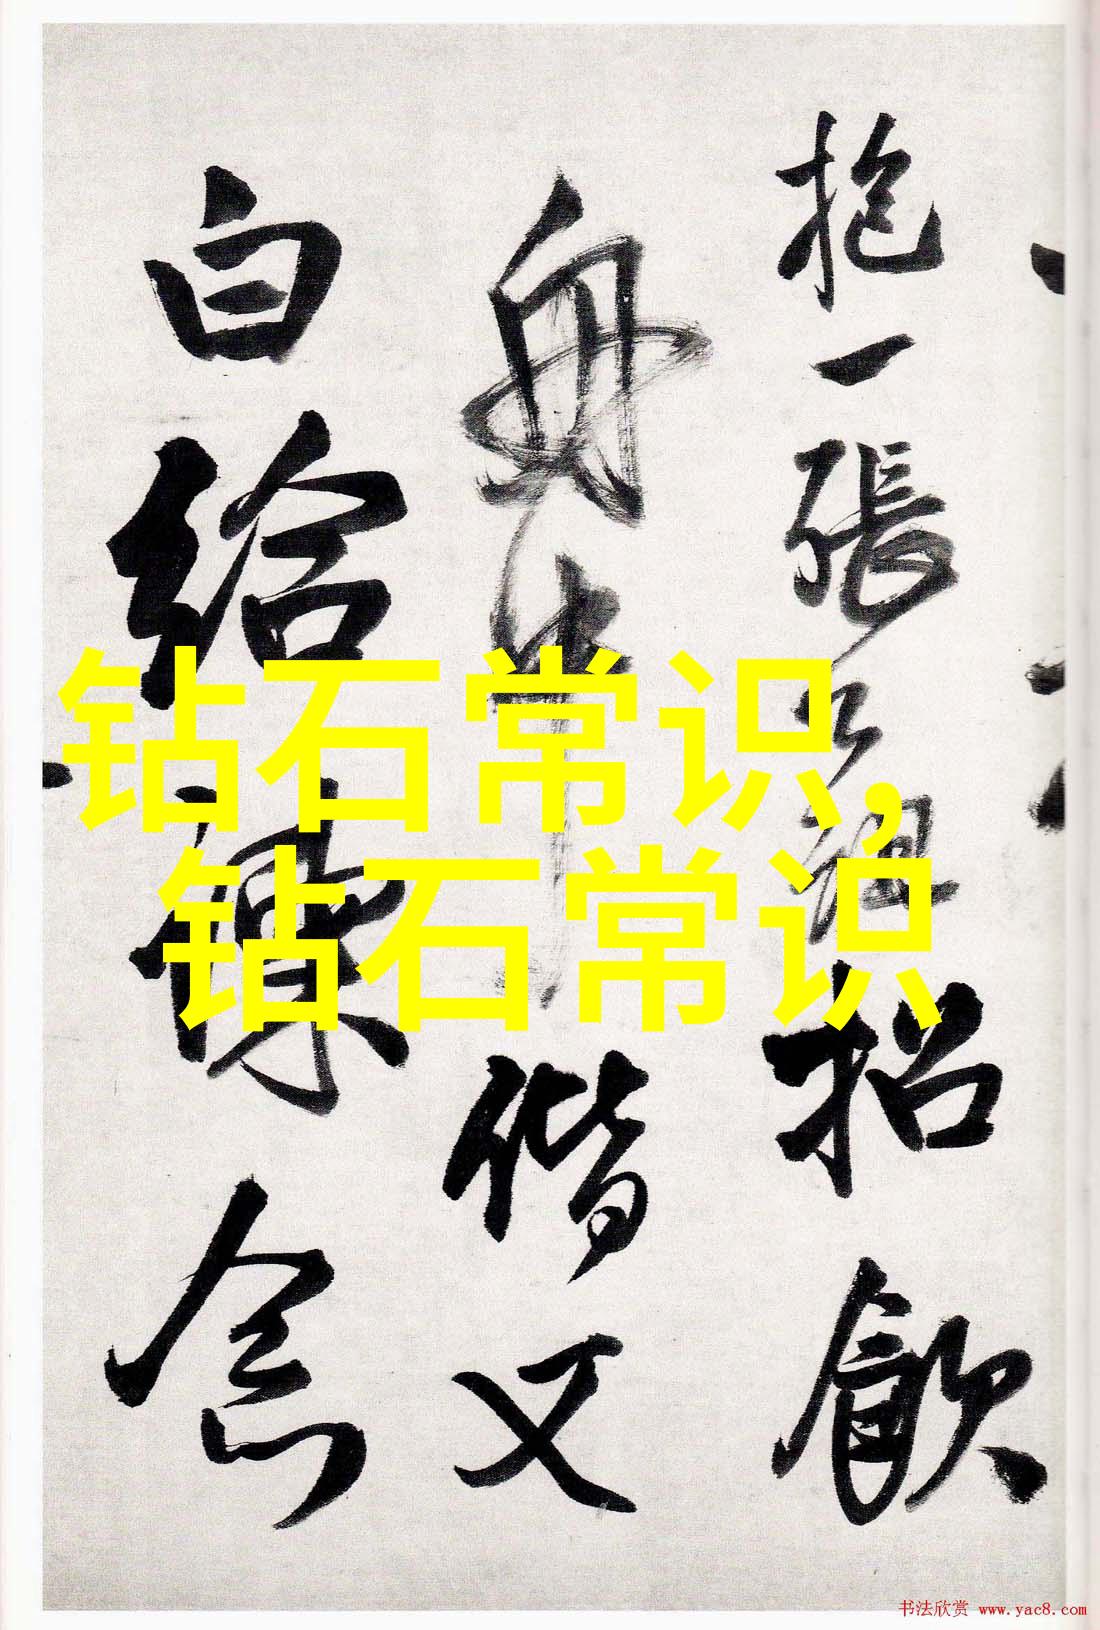 抱一張公祖招飲
舟中偕又
白給諫念
钻石常识,
钻石常识
书法欣赏 www.yac8.com